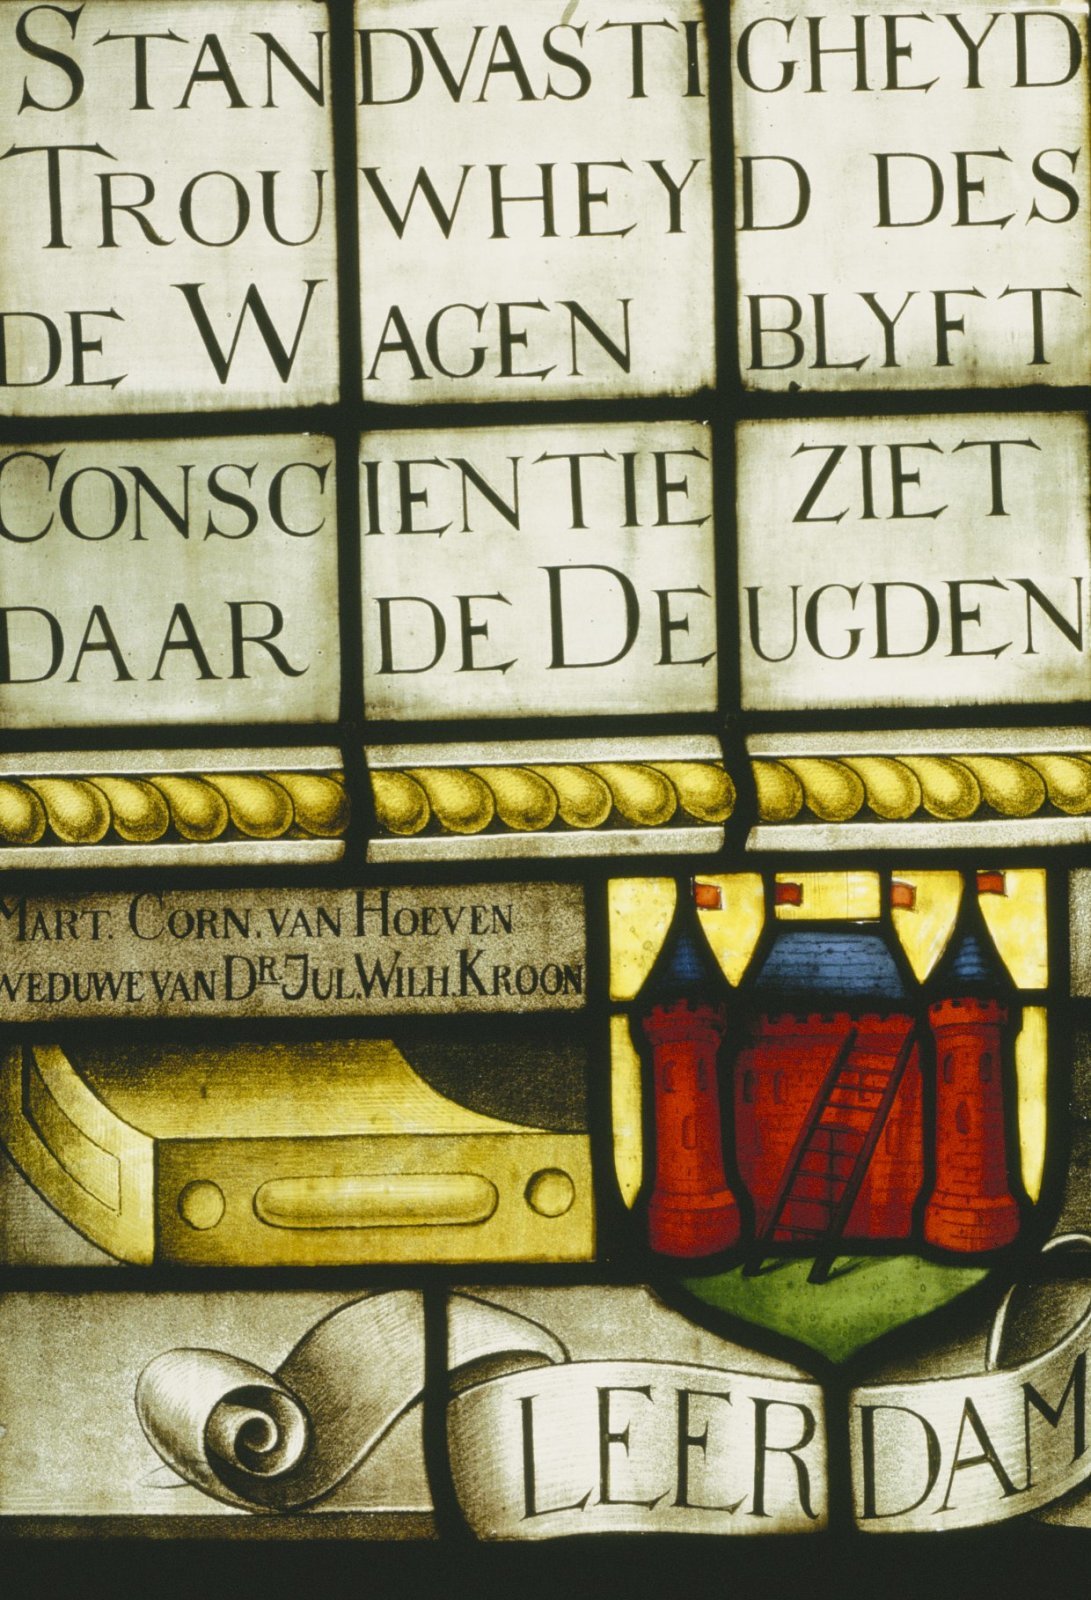 STANDVASTIGHEYD
TROUWHEYD DES
DE WAGEN BLYFT
CONSCIENTIE ZIET
DAAR DE DEUGDEN
MART. CORN. VAN HOEVEN
WEDUWE VAN DR. JUL. WILH. KROON
LEERDAM